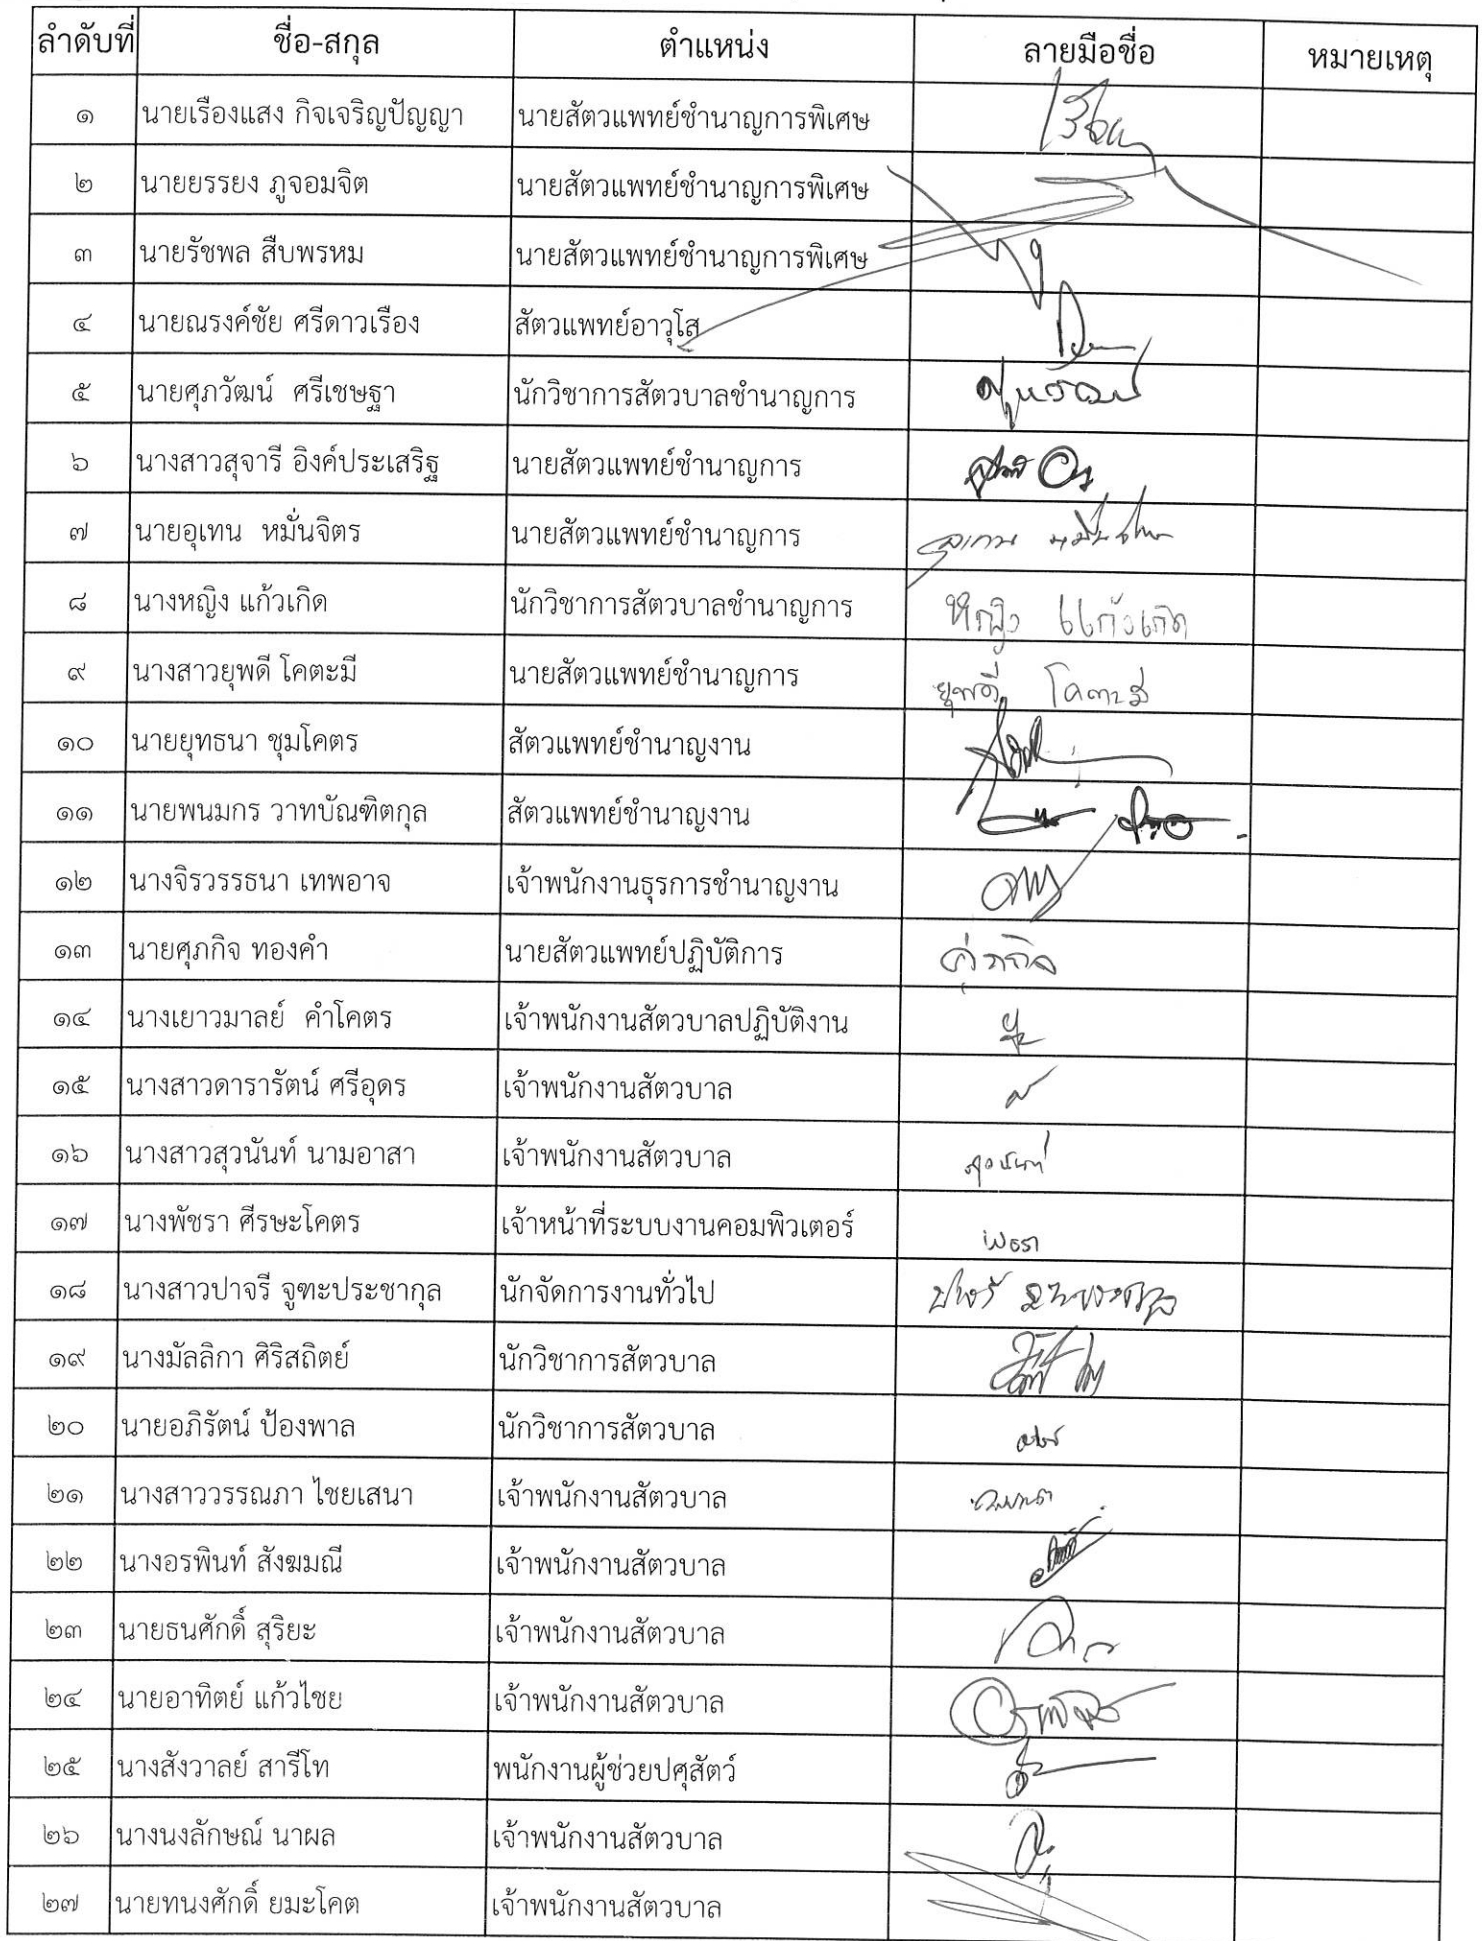 ลำดับที่ ชื่อ-สกุล ตำแหน่ง ลายมือชื่อ หมายเหตุ
๑ นายเรืองแสง กิจเจริญปัญญา นายสัตวแพทย์ชำนาญการพิเศษ
๒ นายยรรยง ภูจอมจิต นายสัตวแพทย์ชำนาญการพิเศษ
๓ นายรัชพล สืบพรหม นายสัตวแพทย์ชำนาญการพิเศษ
๔ นายณรงค์ชัย ศรีดาวเรือง สัตวแพทย์อาวุโส
๕ นายศุภวัฒน์ ศรีเชษฐา นักวิชาการสัตวบาลชำนาญการ ศุภวัฒน์
๖ นางสาวสุจารี อิงค์ประเสริฐ นายสัตวแพทย์ชำนาญการ
๗ นายอุเทน หมั่นจิตร นายสัตวแพทย์ชำนาญการ อุเทน หมั่นจิตร
๘ นางหญิง แก้วเกิด นักวิชาการสัตวบาลชำนาญการ หญิง แก้วเกิด
๙ นางสาวยุพดี โคตะมี นายสัตวแพทย์ชำนาญการ ยุพดี โคตะมี
๑๐ นายยุทธนา ชุมโคตร สัตวแพทย์ชำนาญงาน
๑๑ นายพนมกร วาทบัณฑิตกุล สัตวแพทย์ชำนาญงาน
๑๒ นางจิรวรรธนา เทพอาจ เจ้าพนักงานธุรการชำนาญงาน
๑๓ นายศุภกิจ ทองคำ นายสัตวแพทย์ปฏิบัติการ ศุภกิจ
๑๔ นางเยาวมาลย์ คำโคตร เจ้าพนักงานสัตวบาลปฏิบัติงาน
๑๕ นางสาวดารารัตน์ ศรีอุดร เจ้าพนักงานสัตวบาล
๑๖ นางสาวสุวนันท์ นามอาสา เจ้าพนักงานสัตวบาล สุวนันท์
๑๗ นางพัชรา ศีรษะโคตร เจ้าหน้าที่ระบบงานคอมพิวเตอร์ พัชรา
๑๘ นางสาวปาจรี จูฑะประชากุล นักจัดการงานทั่วไป ปาจรี จูฑะประชากุล
๑๙ นางมัลลิกา ศิริสถิตย์ นักวิชาการสัตวบาล
๒๐ นายอภิรัตน์ ป้องพาล นักวิชาการสัตวบาล
๒๑ นางสาววรรณภา ไชยเสนา เจ้าพนักงานสัตวบาล วรรณภา
๒๒ นางอรพินท์ สังฆมณี เจ้าพนักงานสัตวบาล
๒๓ นายธนศักดิ์ สุริยะ เจ้าพนักงานสัตวบาล
๒๔ นายอาทิตย์ แก้วไชย เจ้าพนักงานสัตวบาล
๒๕ นางสังวาลย์ สารีโท พนักงานผู้ช่วยปศุสัตว์
๒๖ นางนงลักษณ์ นาผล เจ้าพนักงานสัตวบาล
๒๗ นายทนงศักดิ์ ยมะโคต เจ้าพนักงานสัตวบาล